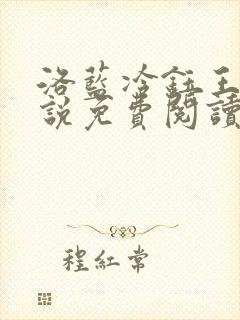 洛藍冷鈺王
說免費閱讀
程紅常